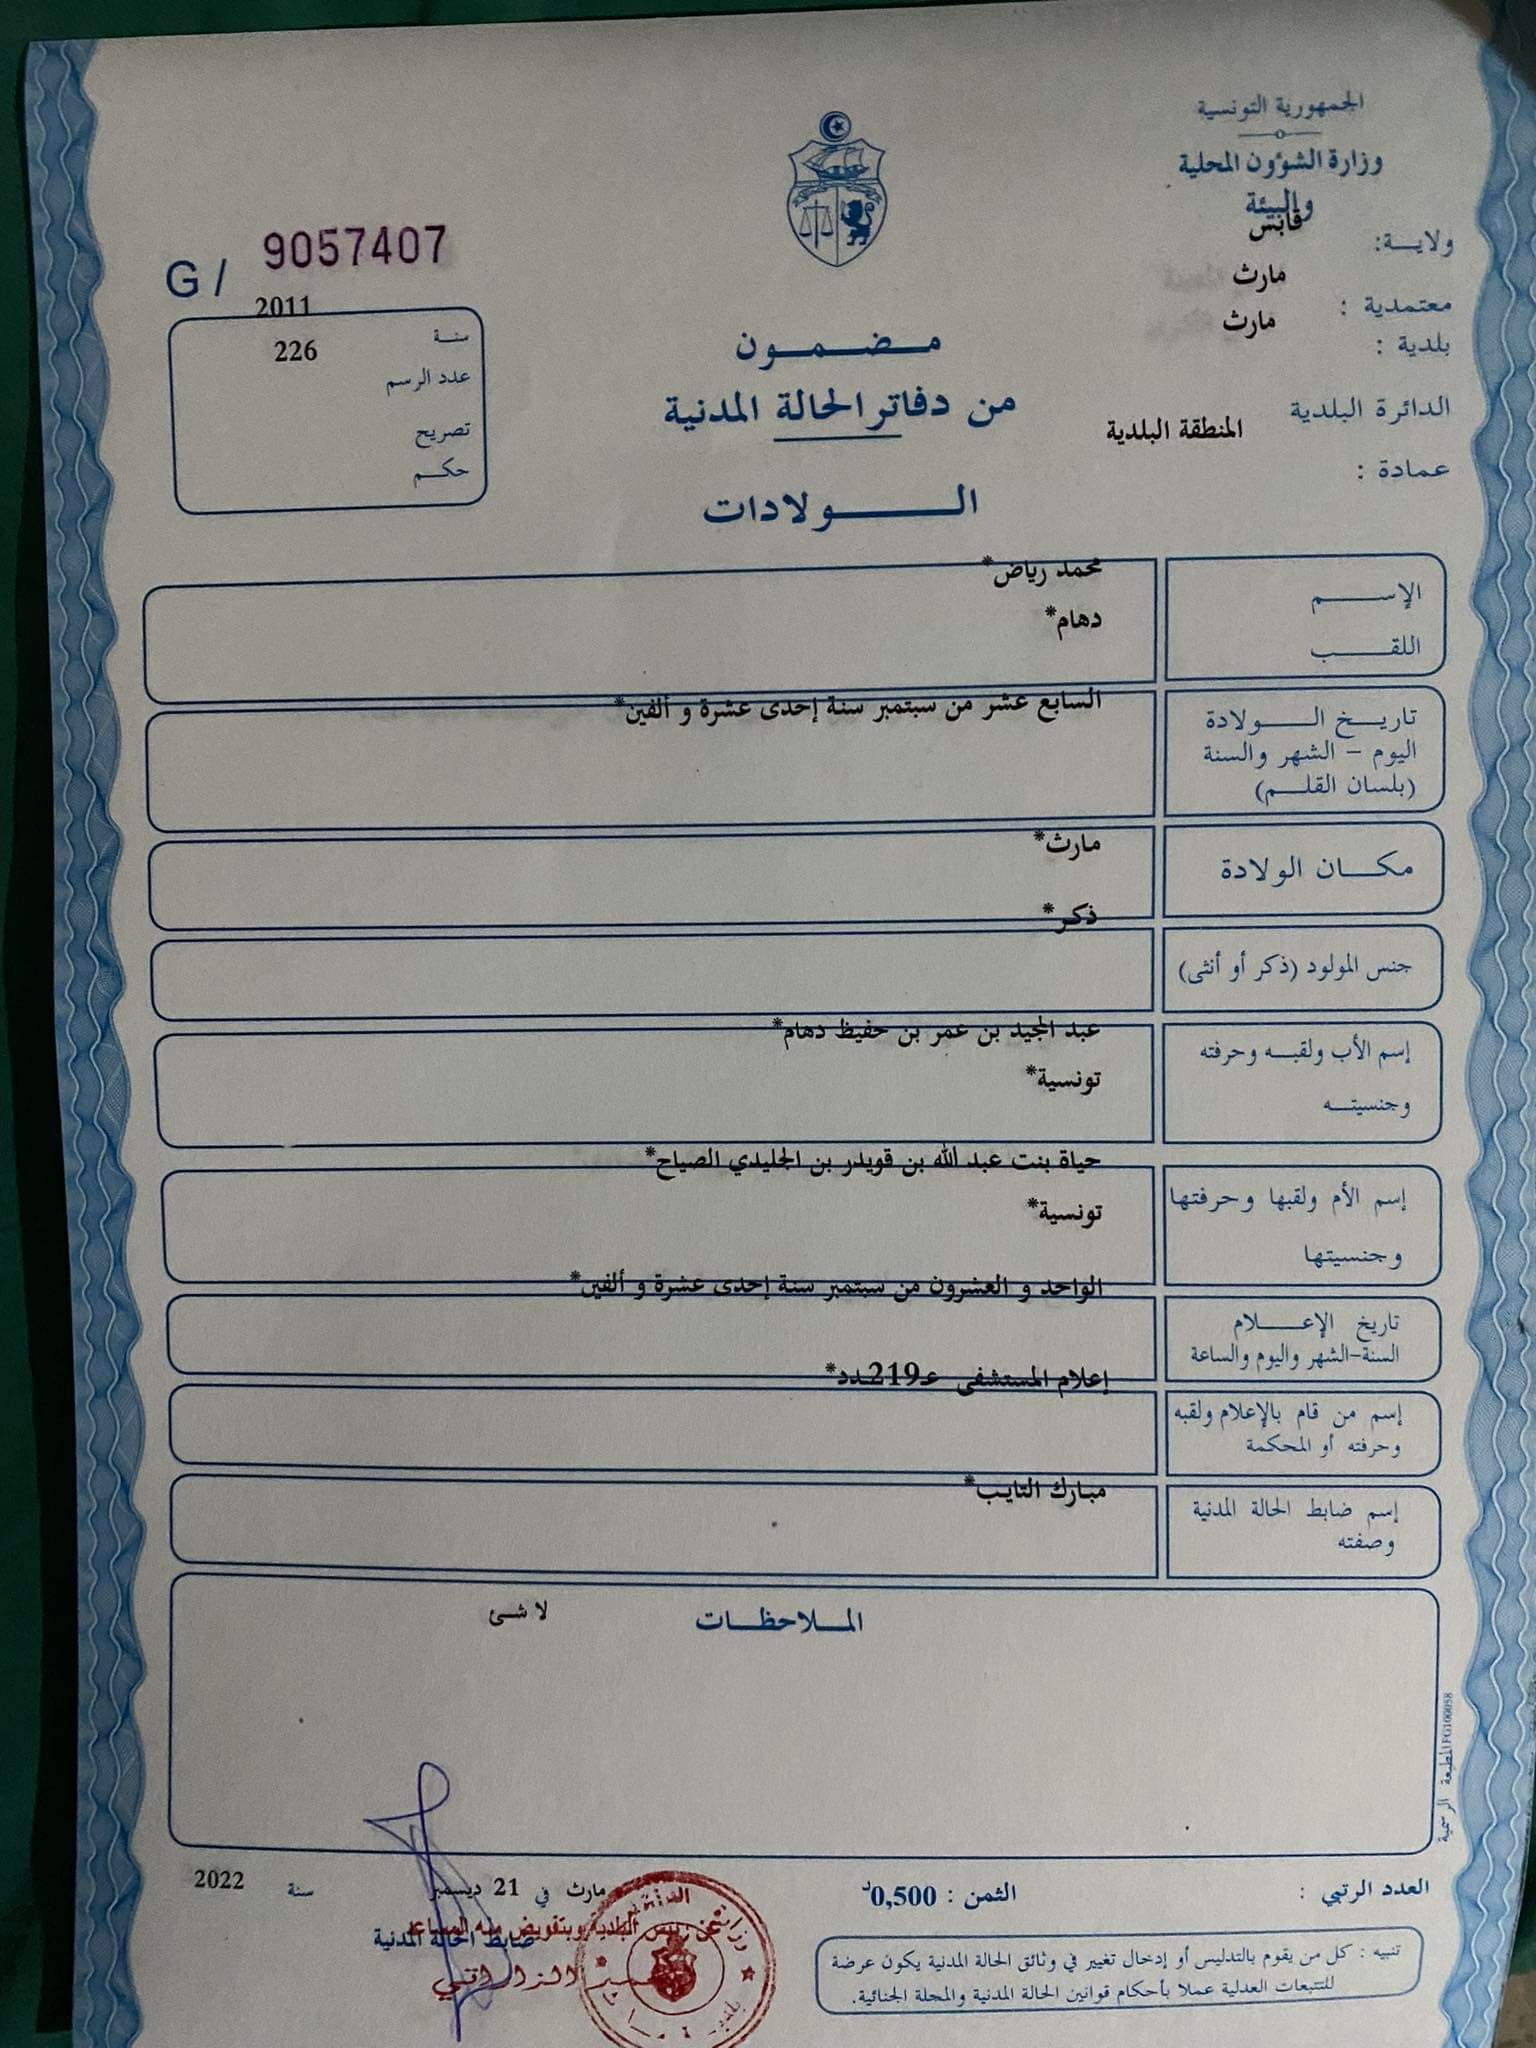 الجمهورية التونسية
وزارة الشؤون المحلية
والبيئة
ولايـــة: قابس
معتمدية : مارث
بلدية : مارث
الدائرة البلدية المنطقة البلدية
عمادة :
مـضـمـون
من دفاتر الحالة المدنية
الــــولادات
G / 9057407
سنـة 2011
عدد الرسم 226
تصريح
حكـم
الإســـــم محمد رياض*
اللقـــــب دهام*
تاريـــخ الــــولادة السابع عشر من سبتمبر سنة إحدى عشرة و ألفين*
اليوم – الشهر والسنة
(بلسان القلــم)
مكـــان الولادة مارث*
جنس المولود (ذكر أو أنثى) ذكر*
إسم الأب ولقبــه وحرفته عبد المجيد بن عمر بن حفيظ دهام*
وجنسيتــه تونسية*
إسم الأم ولقبها وحرفتها حياة بنت عبد الله بن قويدر بن الجليدي الصياح*
وجنسيتها تونسية*
تاريخ الإعـــــلام الواحد و العشرون من سبتمبر سنة إحدى عشرة و ألفين*
السنة-الشهر واليوم والساعة
إسم من قام بالإعلام ولقبه إعلام المستشفى عـ219ـدد*
وحرفته أو المحكمة
إسم ضابط الحالة المدنية مبارك التايب*
وصفته
المــلاحظــات لا شئ
المطبعة الرسمية FG100058
العدد الرتبي :
الثمن : 0,500د
مارث في 21 ديسمبر سنة 2022
ضابط الحالة المدنية
عن رئيس البلدية وبتفويض منه المساعد
الزاراتي
تنبيه : كل من يقوم بالتدليس أو إدخال تغيير في وثائق الحالة المدنية يكون عرضة
للتتبعات العدلية عملا بأحكام قوانين الحالة المدنية والمجلة الجنائية.